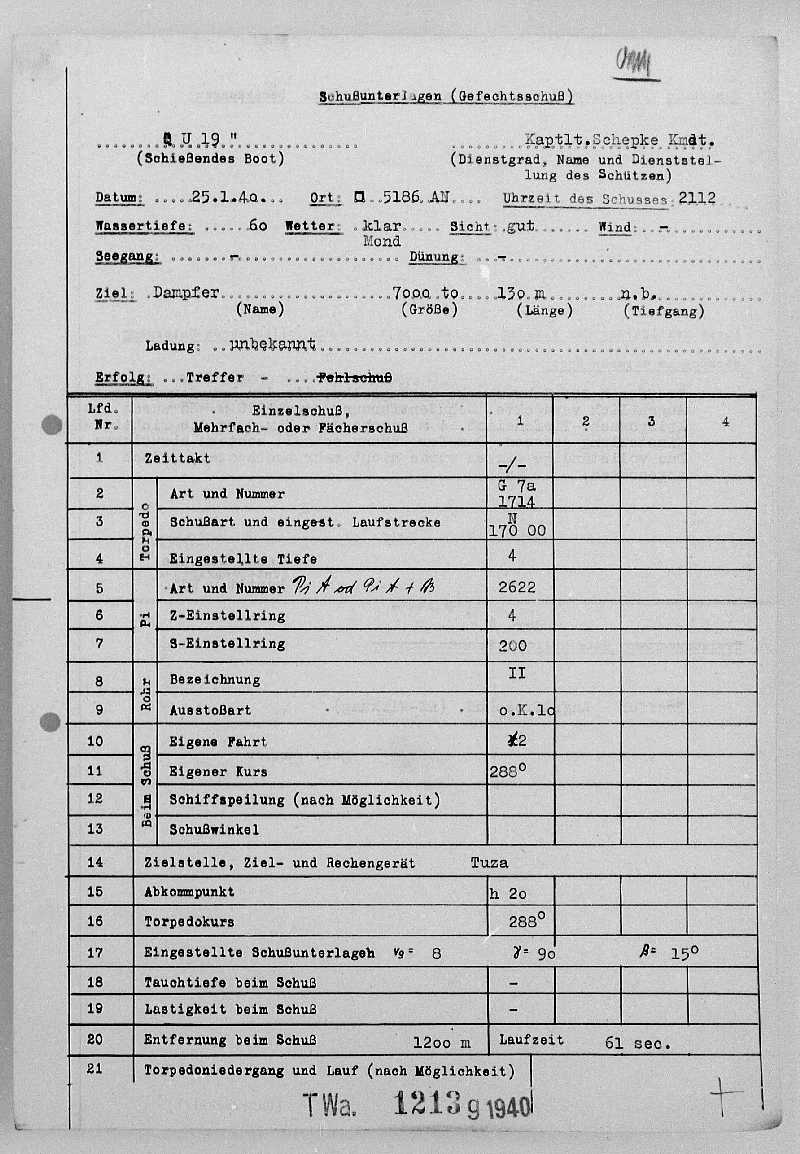 Schußunterlagen (Gefechtsschuß)
U 19 " Kaptlt. Schepke Kmdt.
(Schießendes Boot) (Dienstgrad, Name und Dienststel-
lung des Schützen)
Datum: 25.1.4o. Ort: □ 5186 AN Uhrzeit des Schusses: 2112
Wassertiefe: 6o Wetter: klar Sicht: gut Wind: -
Mond
Seegang: - Dünung: -
Ziel: Dampfer 7ooo to 13o m n.b.
(Name) (Größe) (Länge) (Tiefgang)
Ladung: unbekannt
Erfolg: Treffer - Fehlschuß
Lfd. Nr. Einzelschuß, Mehrfach- oder Fächerschuß 1 2 3 4
1 Zeittakt -/-
Torpedo
2 Art und Nummer G 7a 1714
3 Schußart und eingest. Laufstrecke N 170 00
4 Eingestellte Tiefe 4
Pi
5 Art und Nummer Pi A od Pi A + B 2622
6 Z-Einstellring 4
7 S-Einstellring 200
Rohr
8 Bezeichnung II
9 Ausstoßart o.K.lo
Beim Schuß
10 Eigene Fahrt 2
11 Eigener Kurs 288°
12 Schiffspeilung (nach Möglichkeit)
13 Schußwinkel
14 Zielstelle, Ziel- und Rechengerät Tuza
15 Abkommpunkt h 2o
16 Torpedokurs 288°
17 Eingestellte Schußunterlageh vg = 8 γ = 9o β = 15°
18 Tauchtiefe beim Schuß -
19 Lastigkeit beim Schuß -
20 Entfernung beim Schuß 12oo m Laufzeit 61 sec.
21 Torpedoniedergang und Lauf (nach Möglichkeit)
TWa. 1213 g 1940